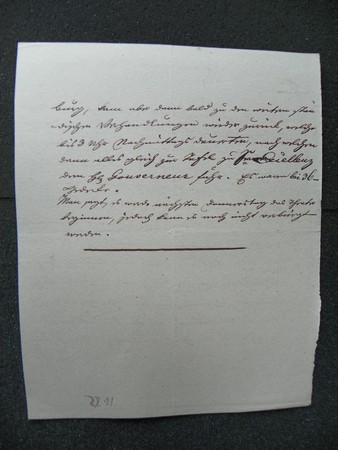 burg, kam aber dann bald zu den weitern stän-
dischen Verhandlungen wieder zurück, welche
bis 3 Uhr Nachmittags dauerten, nach welchen
dann alles gleich zur Tafel zu Sr Excellenz
dem H. Gouverneur fuhr. Es waren bei 36
Gedecke.
Man sagt, es werde nächsten Donnerstag das Theater
beginnen, jedoch kann es noch nicht verbürgt
werden.